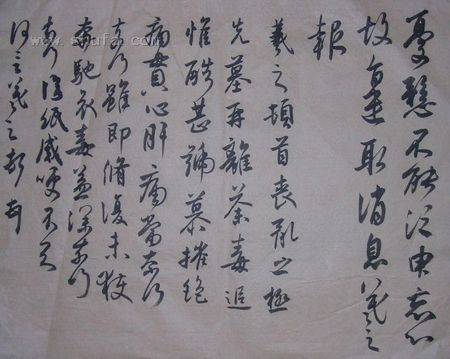 憂懸不能須臾忘心
故遣取消息羲之
報
羲之頓首喪亂之極
先墓再離荼毒追
惟酷甚號慕摧絕
痛貫心肝痛當奈何
奈何雖即脩復未獲
奔馳哀毒益深奈何
奈何臨紙感哽不知
何言羲之頓首